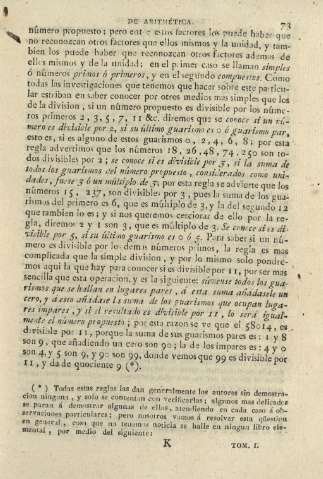 DE ARITMÉTICA. 73
número propuesto; pero entre estos factores los puede haber que
no reconozcan otros factores que ellos mismos y la unidad, y tam-
bien los puede haber que reconozcan otros factores ademas de
ellos mismos y de la unidad: en el primer caso se llaman simples
ó números primos ó primeros, y en el segundo compuestos. Como
todas las investigaciones que tenemos que hacer sobre este particu-
lar estriban en saber conocer por otros medios mas simples que los
de la division, si un número propuesto es divisible por los núme-
ros primeros 2, 3, 5, 7, 11 &c. diremos que se conoce si un nú-
mero es divisible por 2, si su último guarismo es 0 ó guarismo par,
esto es, si es alguno de estos guarismos 0, 2, 4, 6, 8: por esta
regla advertimos que los números 18, 26, 48, 74, 250 son to-
dos divisibles por 2; se conoce si es divisible por 3, si la suma de
todos los guarismos del número propuesto, considerados como uni-
dades, fuese 3 ó un múltiplo de 3: por esta regla se advierte que los
números 15, 237, son divisibles por 3, pues la suma de los gua-
rismos del primero es 6, que es múltiplo de 3, y la del segundo 12
que tambien lo es; y si nos queremos cerciorar de ello por la re-
gla, diremos 2 y 1 son 3, que es múltiplo de 3. Se conoce si es di-
visible por 5, si su último guarismo es 0 ó 5. Para saber si un nú-
mero es divisible por los demas números primos, la regla es mas
complicada que la simple division, y por lo mismo solo pondre-
mos aqui la que hay para conocer si es divisible por 11, por ser mas
sencilla que esta operacion, y es la siguiente: súmense todos los gua-
rismos que se hallan en lugares pares, á esta suma añádasele un
cero, y á eso añádase la suma de los guarismos que ocupan luga-
res impares, y si el resultado es divisible por 11, lo será igual-
mente el número propuesto; por esta razon se ve que el 58014, es
divisible por 11, porque la suma de sus guarismos pares es: 1 y 8
son 9, que añadiendo un cero son 90; la de los impares es: 4 y 0
son 4, y 5 son 9, y 90 son 99, donde vemos que 99 es divisible por
11, y da de quociente 9 (*).
(*) Todas estas reglas las dan generalmente los autores sin demostra-
cion ninguna, y solo se contentan con verificarlas; algunos mas delicados
se paran á demostrar algunas de ellas, atendiendo en cada caso á ob-
servaciones particulares; pero nosotros vamos á resolver esta qüestion
en general, cosa que no tenemos noticia se halle en ningun libro ele-
mental, por medio del siguiente:
K TOM. I.